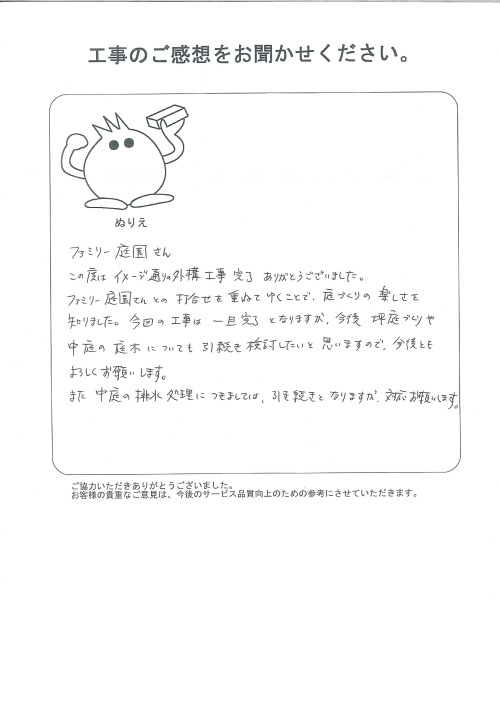 工事のご感想をお聞かせください。
ぬりえ
ファミリー庭園さん
この度は イメージ通りの外構工事完了 ありがとうございました。
ファミリー庭園さんとの打合せを重ねてゆくことで、庭づくりの楽しさを
知りました。今回の工事は一旦完了となりますが、今後 坪庭づくりや
中庭の庭木についても引続き検討したいと思いますので、今後とも
よろしくお願いします。
また 中庭の排水処理につきましては、引き続きとなりますが、対応お願いします。
ご協力いただきありがとうございました。
お客様の貴重なご意見は、今後のサービス品質向上のための参考にさせていただきます。